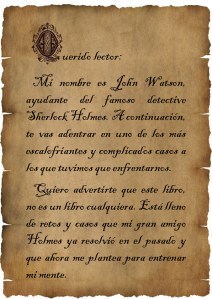 Querido lector:
Mi nombre es John Watson,
ayudante del famoso detective
Sherlock Holmes. A continuación,
te vas adentrar en uno de los más
escalofriantes y complicados casos a
los que tuvimos que enfrentarnos.
Quiero advertirte que este libro,
no es un libro cualquiera. Está lleno
de retos y casos que mi gran amigo
Holmes ya resolvió en el pasado y
que ahora me plantea para entrenar
mi mente.